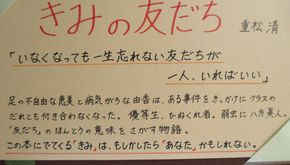 きみの友だち
重松 清
「いなくなっても一生忘れない友だちが
一人、いればいい」
足の不自由な恵美と病気がちな由香は、ある事件をきっかけにクラスの
だれとも付き合わなくなった。優等生、ひねくれ者、弱虫に八方美人。
「友だち」のほんとうの意味をさがす物語。
この本にでてくる「きみ」は、もしかしたら「あなた」かもしれない。